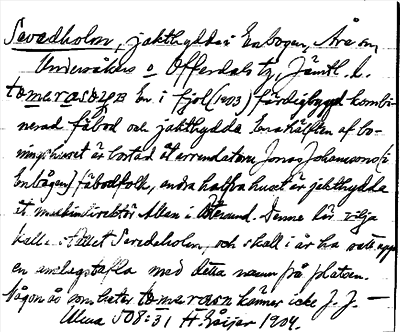 Sevedholm, jakthydda i Enbogen, Åre sn,
Undersåkers o Offerdals tg, Jämtl. l.
En i fjol (1903) färdigbyggd kombi-
nerad fäbod och jakthydda. Ena hälften af bo-
ningshuset är bostad åt arrendatorn Jonas Johanssons (i
Enbågen) fäbodfolk, andra halfva huset är jakthydda
åt maskindirektör Alban i Östersund. Denne lär vilja
kalla stället Sevedholm, och skall i år ha satt upp
en anslagstafla med detta namn på platsen.
Någon ås som heter känner icke J. J. —
508:31 H. Geijer 1904.